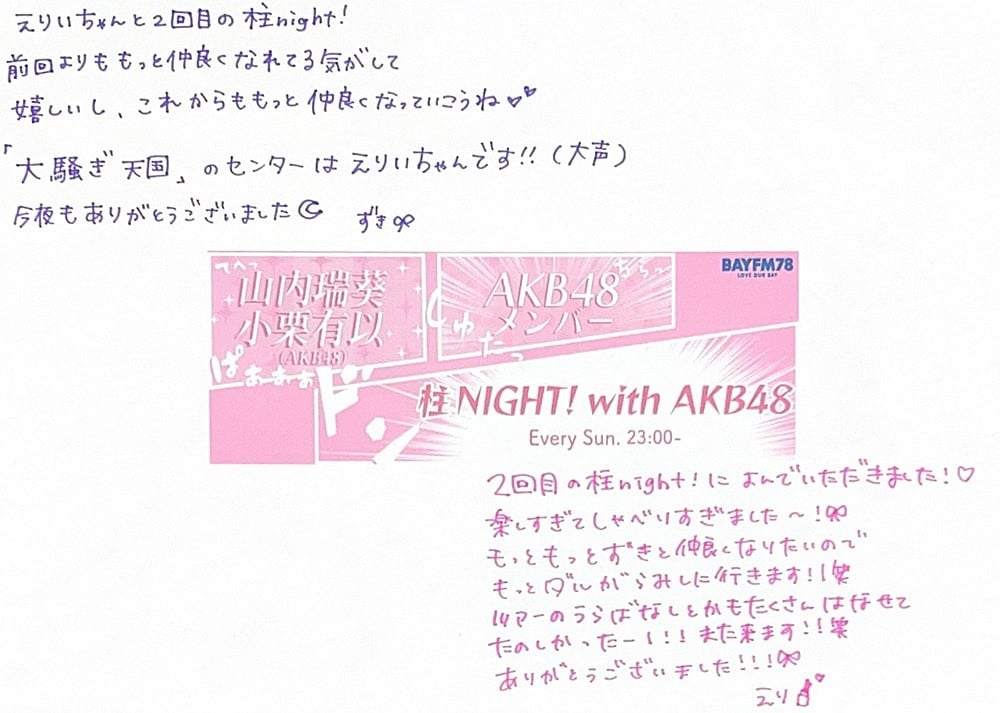 えりいちゃんと2回目の柱night!
前回よりももっと仲良くなれてる気がして
嬉しいし、これからももっと仲良くなっていこうね♡♡
「大騒ぎ天国」のセンターはえりいちゃんです!!(大声)
今夜もありがとうございました☾ ずき
てへっ
山内瑞葵
小栗有以
(AKB48)
ぱぁぁぁぁ
AKB48
メンバー
しゅたっ
BAYFM78
LOVE OUR BAY
ドーン
柱NIGHT! with AKB48
Every Sun. 23:00-
2回目の柱night!によんでいただきました!♡
楽しすぎてしゃべりすぎました〜!
もっともっとずきと仲良くなりたいので
もっとダルがらみしに行きます!!笑
ツアーのうらばなしとかもたくさんはなせて
たのしかったー!!!また来ます!!笑
ありがとうございました!!!
えり